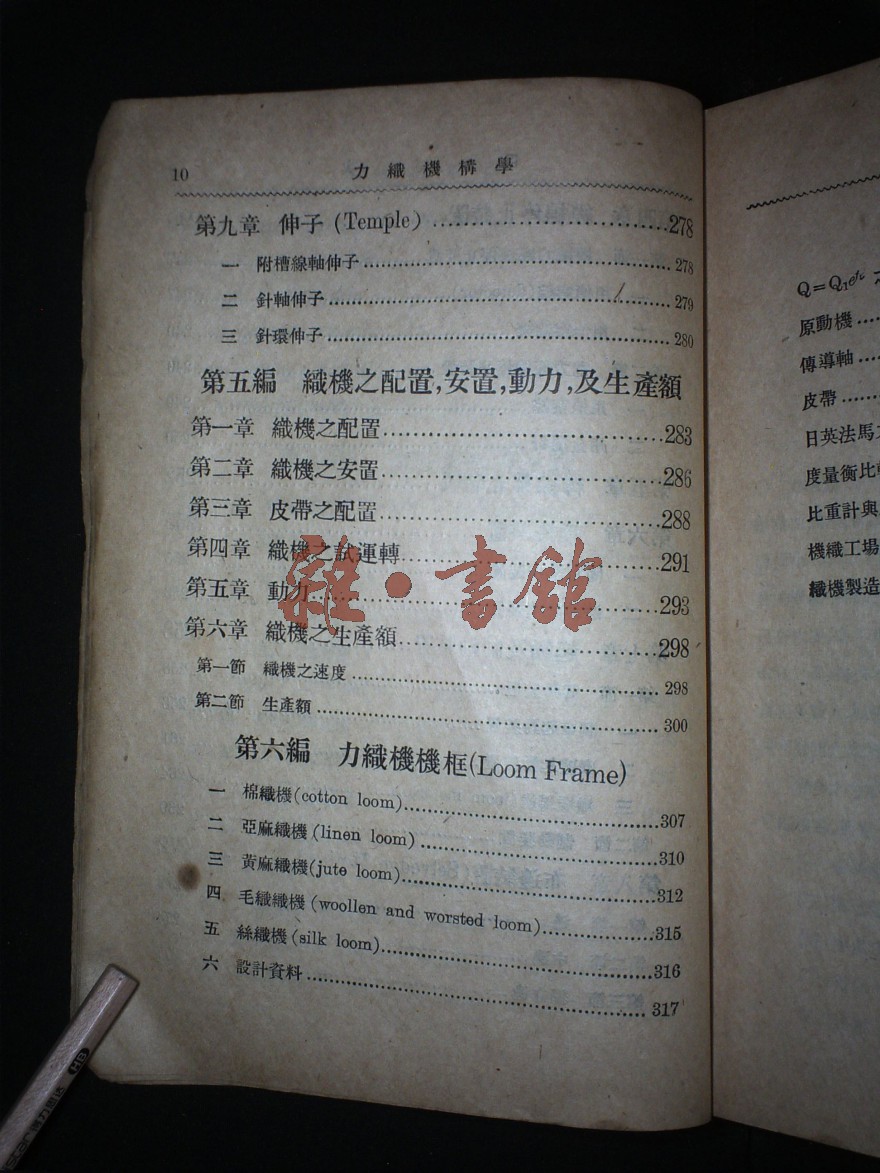 10 力織機構學
第九章 伸子 (Temple) ........................278
一 附槽線軸伸子........................278
二 針軸伸子........................279
三 針環伸子........................280
第五編 織機之配置,安置,動力,及生產額
第一章 織機之配置........................283
第二章 織機之安置........................286
第三章 皮帶之配置........................288
第四章 織機之試運轉........................291
第五章 動力........................293
第六章 織機之生產額........................298
第一節 織機之速度........................298
第二節 生產額........................300
第六編 力織機機框(Loom Frame)
一 棉織機(cotton loom)........................307
二 亞麻織機(linen loom)........................310
三 黃麻織機(jute loom)........................312
四 毛織織機(woollen and worsted loom)........................315
五 絲織機(silk loom)........................316
六 設計資料........................317
雜·書館
HB
原動機....
傳導軸....
皮帶....
日英法馬
度量衡比
比重計與
機織工場
織機製造